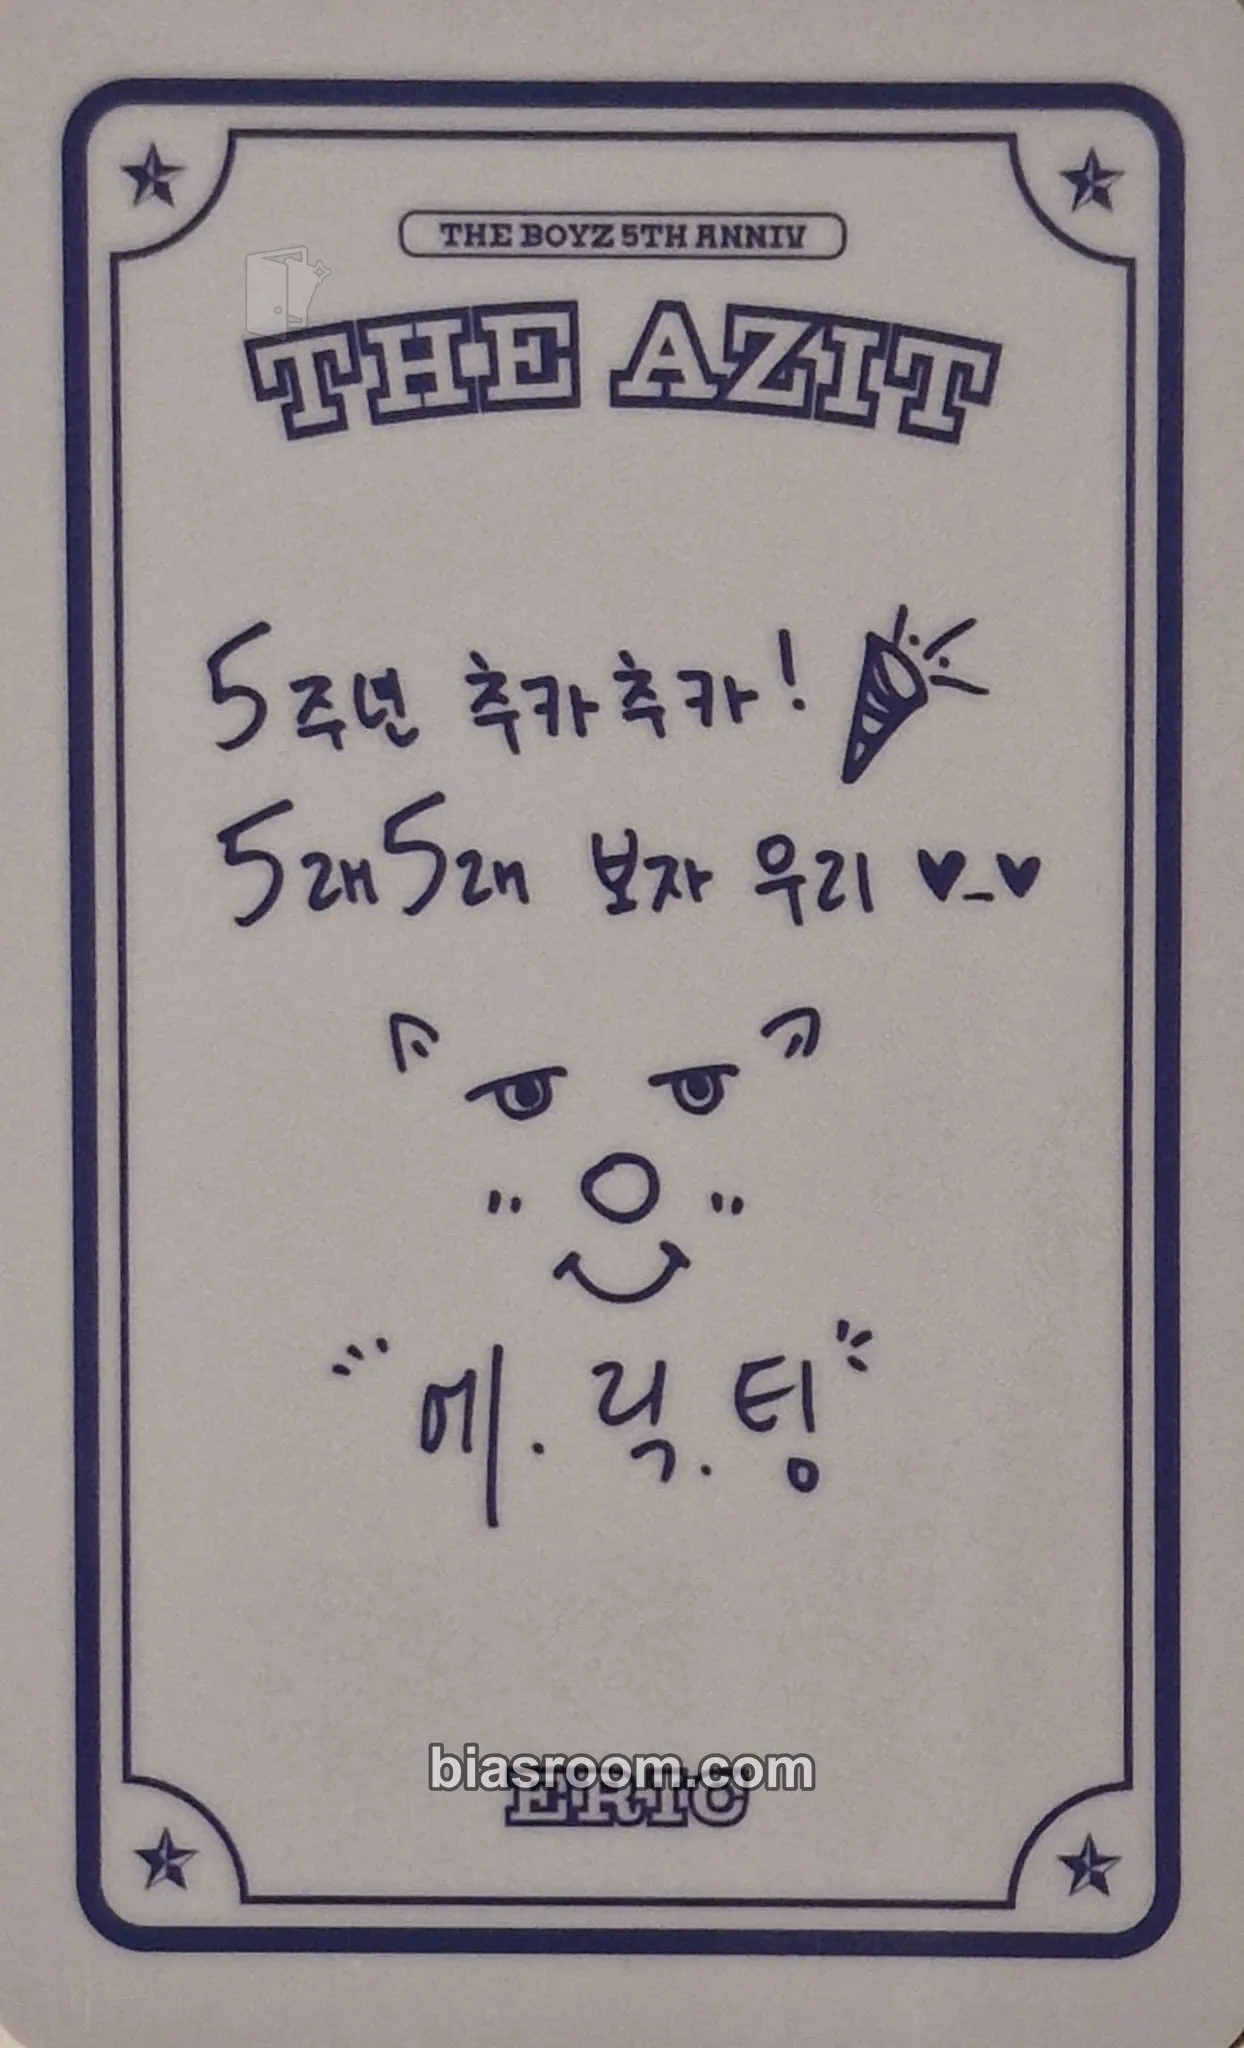 THE BOYZ 5TH ANNIV
THE AZIT
5주년 추카추카!
5래5래 보자 우리 ♥_♥
에.릭.팅
biasroom.com
ERIC